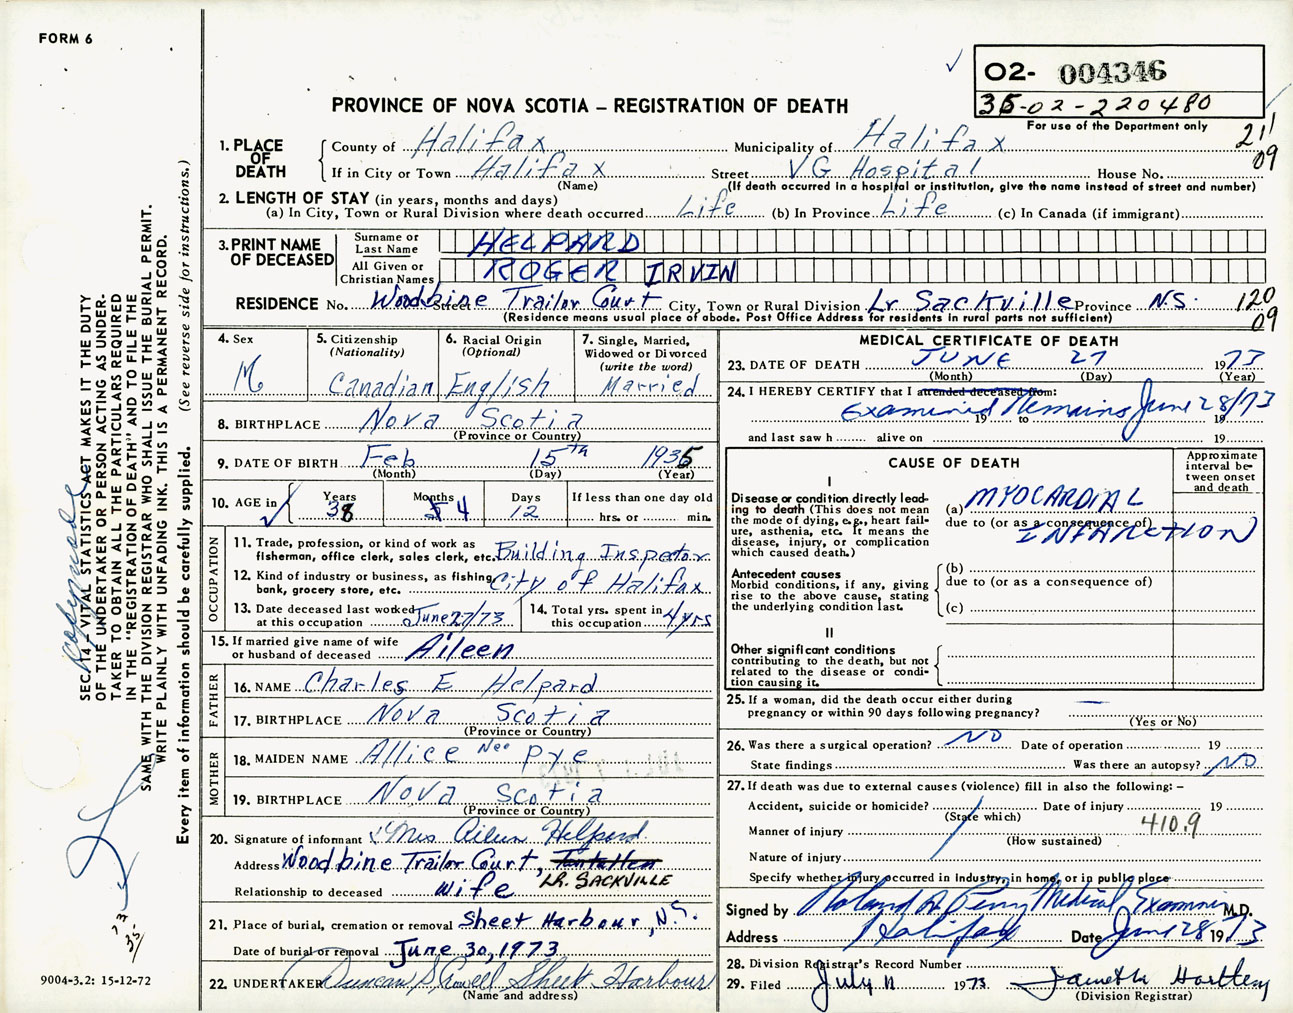 FORM 6
O2- 004346
35-02-220480
For use of the Department only
PROVINCE OF NOVA SCOTIA – REGISTRATION OF DEATH
1. PLACE OF DEATH County of Halifax Municipality of Halifax 21
If in City or Town Halifax Street VG Hospital House No. 09
(Name) (If death occurred in a hospital or institution, give the name instead of street and number)
2. LENGTH OF STAY (in years, months and days)
(a) In City, Town or Rural Division where death occurred Life (b) In Province Life (c) In Canada (if immigrant)
3. PRINT NAME OF DECEASED Surname or Last Name HELPARD
All Given or Christian Names ROGER IRVIN
RESIDENCE No. Woodbine Street Trailor Court City, Town or Rural Division Lr Sackville Province N.S. 120
(Residence means usual place of abode. Post Office Address for residents in rural parts not sufficient) 09
4. Sex M
5. Citizenship (Nationality) Canadian
6. Racial Origin (Optional) English
7. Single, Married, Widowed or Divorced (write the word) Married
8. BIRTHPLACE Nova Scotia
(Province or Country)
9. DATE OF BIRTH Feb 15th 1935
(Month) (Day) (Year)
10. AGE in Years Months Days If less than one day old
38 4 12 hrs. or min.
OCCUPATION
11. Trade, profession, or kind of work as fisherman, office clerk, sales clerk, etc. Building Inspector
12. Kind of industry or business, as fishing, bank, grocery store, etc. City of Halifax
13. Date deceased last worked at this occupation June 27/73
14. Total yrs. spent in this occupation 4 yrs
15. If married give name of wife or husband of deceased Aileen
FATHER
16. NAME Charles E Helpard
17. BIRTHPLACE Nova Scotia
(Province or Country)
MOTHER
18. MAIDEN NAME Allice Nee Pye
19. BIRTHPLACE Nova Scotia
(Province or Country)
20. Signature of informant Mrs Aileen Helpard
Address Woodbine Trailor Court,
LR. SACKVILLE
Relationship to deceased wife
21. Place of burial, cremation or removal Sheet Harbour, N.S.
Date of burial or removal June 30, 1973
22. UNDERTAKER Duncan S Crowell Sheet Harbour
(Name and address)
MEDICAL CERTIFICATE OF DEATH
23. DATE OF DEATH JUNE 27 1973
(Month) (Day) (Year)
24. I HEREBY CERTIFY that I attended deceased from:
Examined Remains June 28/73
19 to 19
and last saw h alive on 19
CAUSE OF DEATH
Approximate interval between onset and death
I
Disease or condition directly leading to death (This does not mean the mode of dying, e.g., heart failure, asthenia, etc. It means the disease, injury, or complication which caused death.)
(a) MYOCARDIAL
due to (or as a consequence of)
INFARCTION
Antecedent causes
Morbid conditions, if any, giving rise to the above cause, stating the underlying condition last.
(b)
due to (or as a consequence of)
(c)
II
Other significant conditions contributing to the death, but not related to the disease or condition causing it.
25. If a woman, did the death occur either during pregnancy or within 90 days following pregnancy? —
(Yes or No)
26. Was there a surgical operation? NO Date of operation 19
State findings Was there an autopsy? NO
27. If death was due to external causes (violence) fill in also the following: –
Accident, suicide or homicide? Date of injury 19
(State which)
Manner of injury 410.9
(How sustained)
Nature of injury
Specify whether injury occurred in Industry, in home, or in public place
Signed by Roland A Perry Medical Examiner M.D.
Address Halifax Date June 28 1973
28. Division Registrar's Record Number
29. Filed July 11 1973
(Division Registrar)
SEC. 14 – VITAL STATISTICS ACT MAKES IT THE DUTY
OF THE UNDERTAKER OR PERSON ACTING AS UNDER-
TAKER TO OBTAIN ALL THE PARTICULARS REQUIRED
IN THE "REGISTRATION OF DEATH" AND TO FILE THE
SAME WITH THE DIVISION REGISTRAR WHO SHALL ISSUE THE BURIAL PERMIT.
WRITE PLAINLY WITH UNFADING INK. THIS IS A PERMANENT RECORD.
Every item of information should be carefully supplied. (See reverse side for instructions.)
9004-3.2: 15-12-72